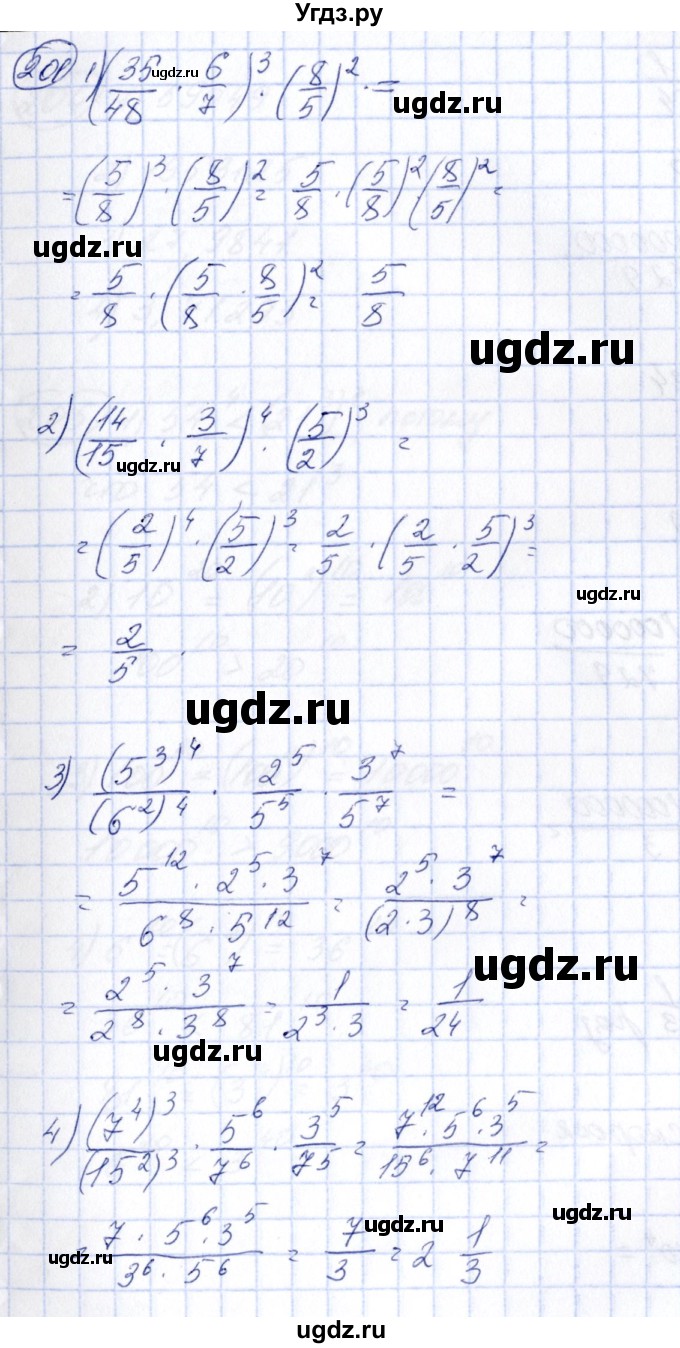 Угдз.ру
200 1) (35/48 · 6/7)³ · (8/5)² · =
ugdz.ru
ugdz.ru
= (5/8)³ · (8/5)² = 5/8 · (5/8)² (8/5)² =
ugdz.ru
ugdz.ru
= 5/8 · (5/8 · 8/5)² = 5/8
ugdz.ru
2) (14/15 · 3/7)⁴ · (5/2)³ =
ugdz.ru
= (2/5)⁴ · (5/2)³ = 2/5 · (2/5 · 5/2)³ =
ugdz.ru
= 2/5 .
ugdz.ru
3) (5³)⁴/(6²)⁴ · 2⁵/5⁵ · 3⁷/5⁷ =
= 5¹² · 2⁵ · 3⁷/6⁸ · 5¹² = 2⁵ · 3⁷/(2·3)⁸ =
ugdz.ru
= 2⁵ · 3⁷/2⁸ · 3⁸ = 1/2³ · 3 = 1/24
ugdz.ru
4) (7⁴)³/(15²)³ · 5⁶/7⁶ · 3⁵/75 = 7¹² · 5⁶ · 3⁵/15⁶ · 7¹¹ =
ugdz.ru
ugdz.ru
= 7 · 5⁶ · 3⁵/3⁶ · 5⁶ = 7/3 = 2 1/3
ugdz.ru
ugdz.ru